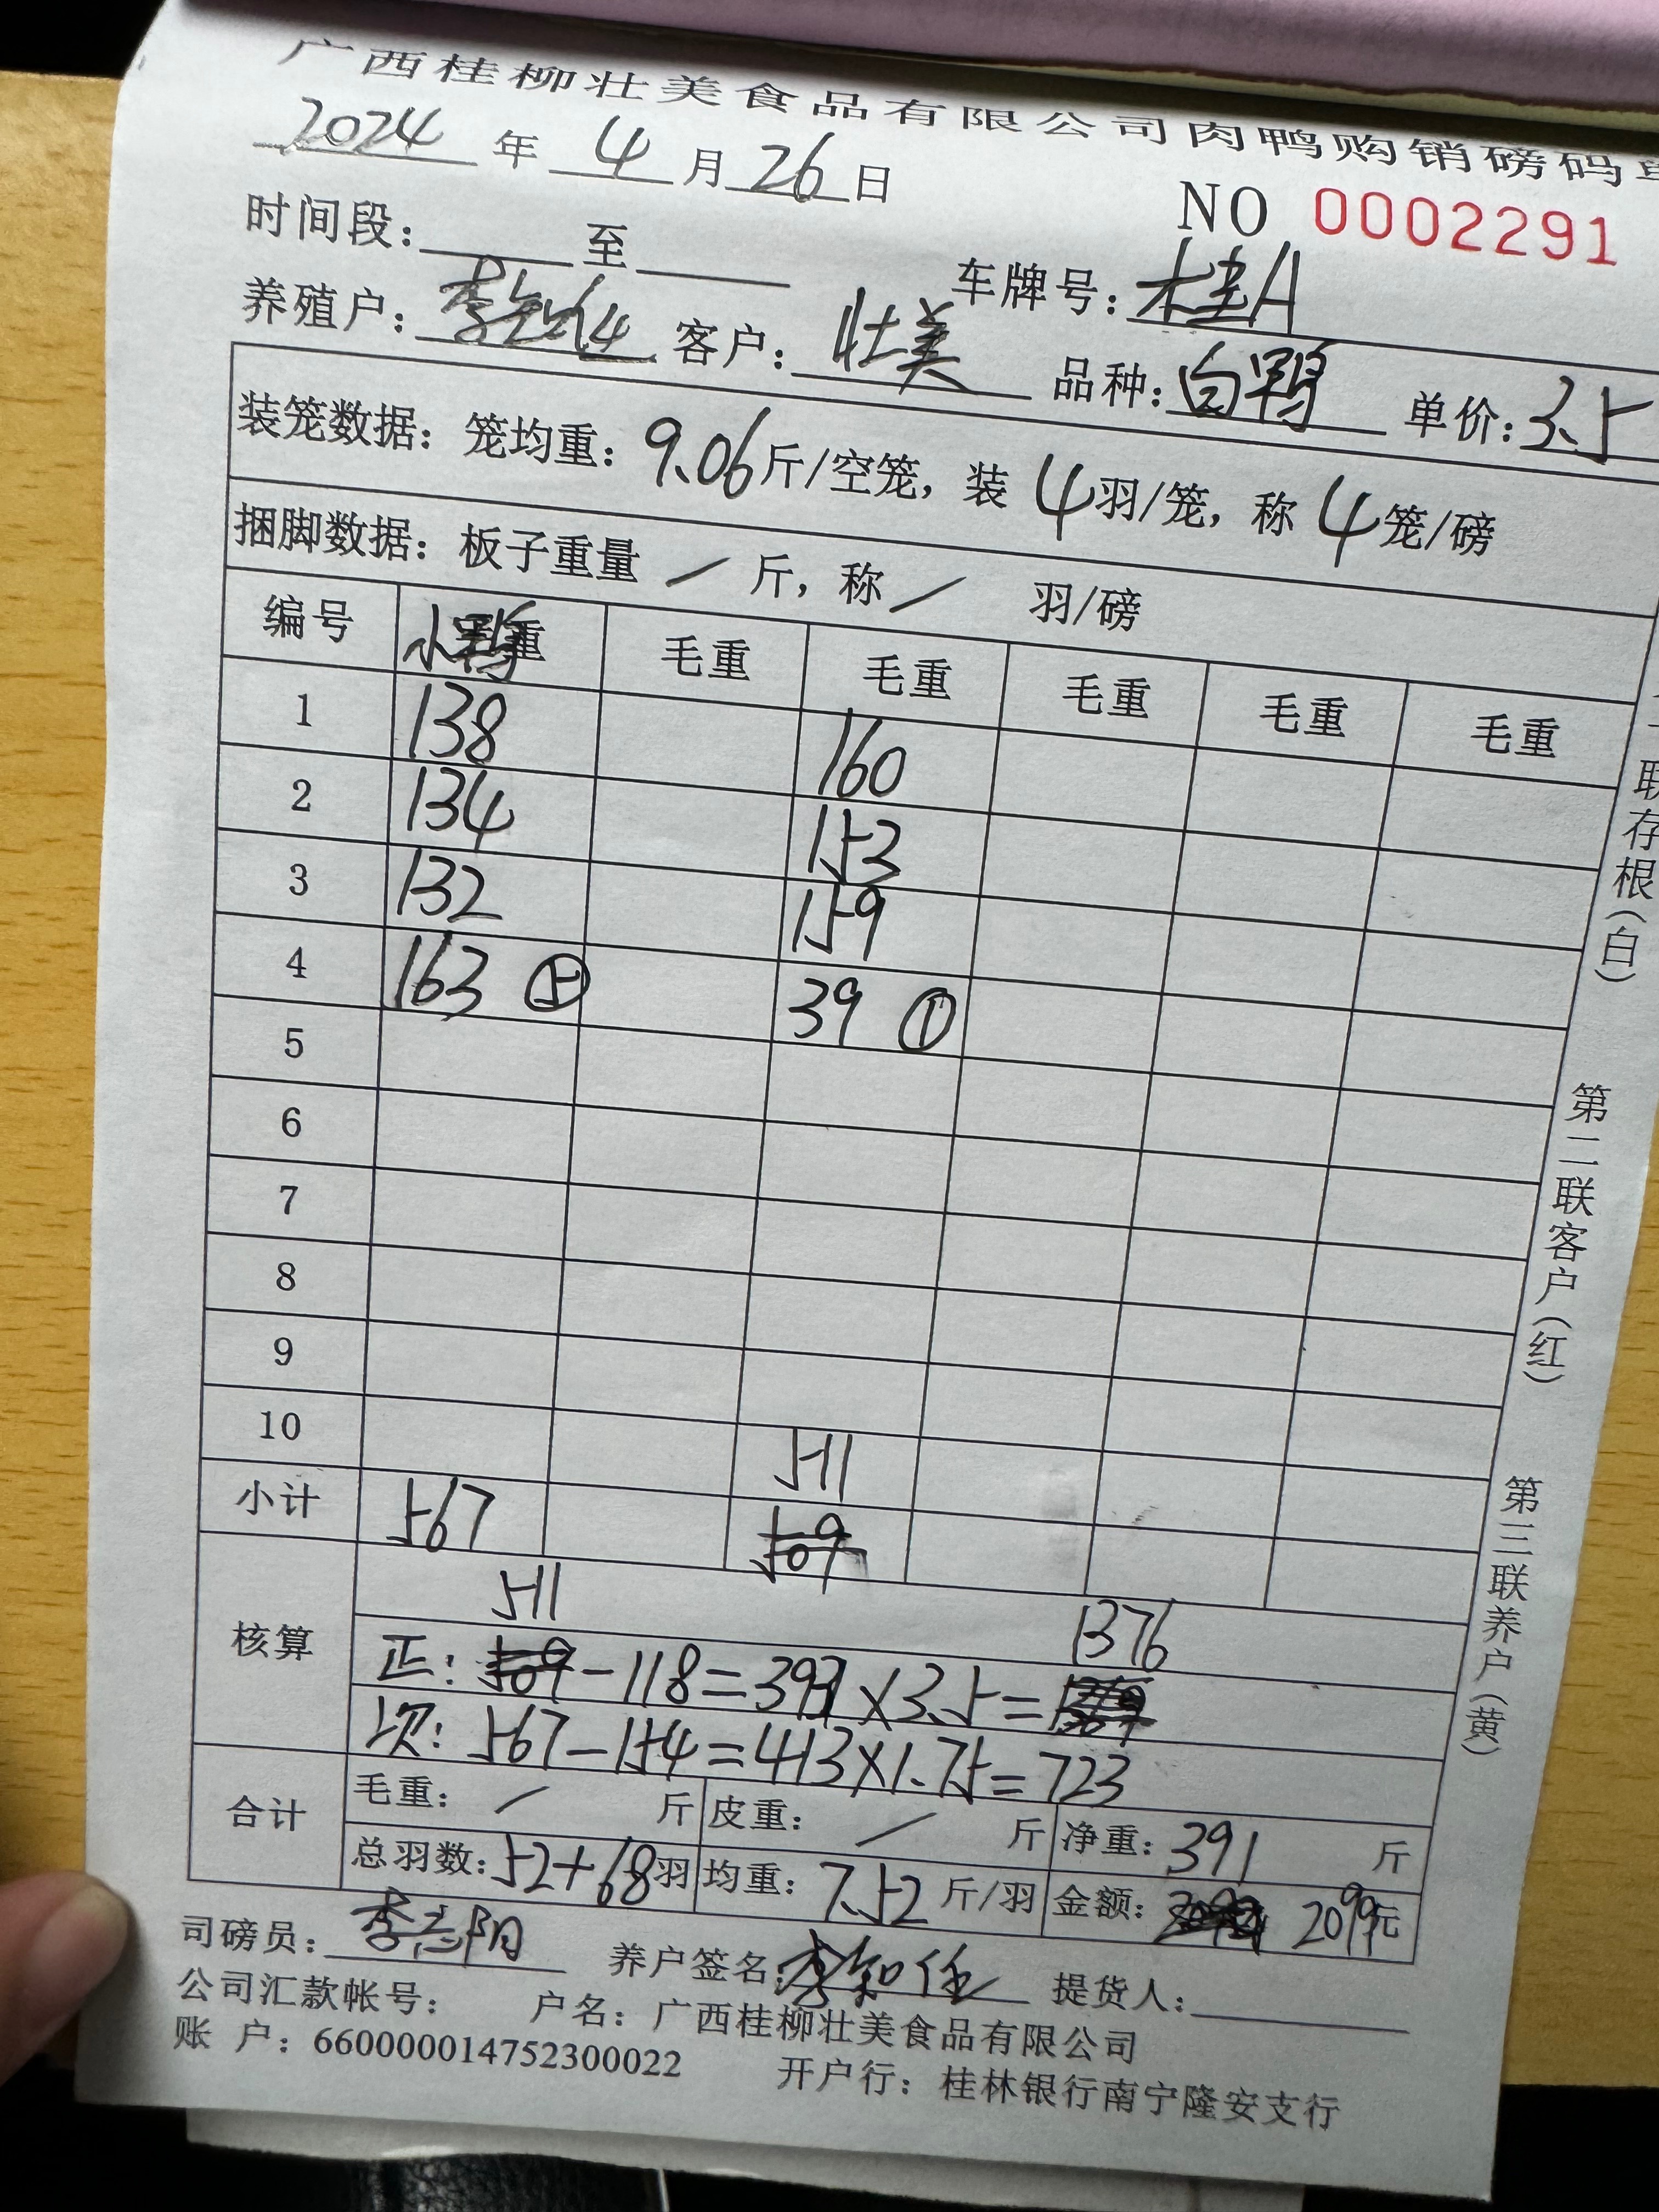 广西桂柳壮美食品有限公司肉鸭购销磅码单
2024 年 4 月 26 日
NO 0002291
时间段: 至 车牌号: 桂A
养殖户: 客户: 壮美 品种: 白鸭 单价: 3.5
装笼数据: 笼均重: 9.06 斤/空笼, 装 4 羽/笼, 称 4 笼/磅
捆脚数据: 板子重量 / 斤, 称 / 羽/磅
编号 小鸭 重 毛重 毛重 毛重 毛重 毛重
1 138 160
2 134 153
3 132 159
4 163 ⑤ 39 ①
5
6
7
8
9
10 511
小计 567 509
核算
511 1376
正: 509-118=391×3.5=
次: 567-154=413×1.75=723
合计
毛重: / 斤 皮重: / 斤 净重: 391 斤
总羽数: 52+68 羽 均重: 7.52 斤/羽 金额: 2099 元
司磅员: 李志阳 养户签名: 李知任 提货人:
公司汇款帐号: 户名: 广西桂柳壮美食品有限公司
账 户: 660000014752300022 开户行: 桂林银行南宁隆安支行
联存根(白)
第二联客户(红)
第三联养户(黄)